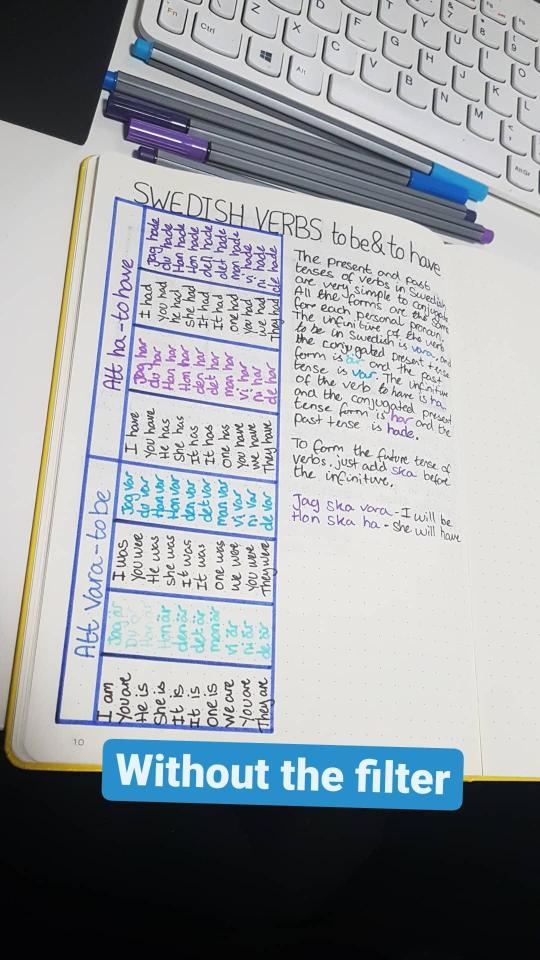 SWEDISH VERBS to be & to have
Att ha - to have
Jag hade
du hade
Han hade
Hon hade
den hade
det hade
man hade
vi hade
ni hade
de hade
I had
You had
he had
she had
It had
It had
one had
we had
They had
Jag har
du har
Han har
Hon har
den har
det har
man har
vi har
ni har
de har
I have
You have
He has
She has
It has
It has
one has
You have
we have
They have
Att vara - to be
Jag var
du var
Han var
Hon var
den var
det var
man var
vi var
ni var
de var
I was
You were
He was
she was
It was
It was
one was
we were
You were
They were
Jag är
Du är
Han är
Hon är
den är
det är
man är
vi är
ni är
de är
I am
You are
He is
She is
It is
It is
One is
We are
You are
They are
The present and past
tenses of verbs in Swedish
are very simple to conjugate
All the forms are the same
for each personal pronoun.
The infinitive of the verb
to be in Swedish is vara, and
the conjugated present tense
form is är and the past
tense is var. The infinitive
of the verb to have is ha
and the conjugated present
tense form is har and the
past tense is hade.
To form the future tense of
verbs, just add ska before
the infinitive.
Jag ska vara - I will be
Hon ska ha - she will have
10
Without the filter
Fn
Ctrl
Alt
Z
X
C
V
B
N
M
D
F
G
H
J
K
L
T
Y
U
I
O
AltGr